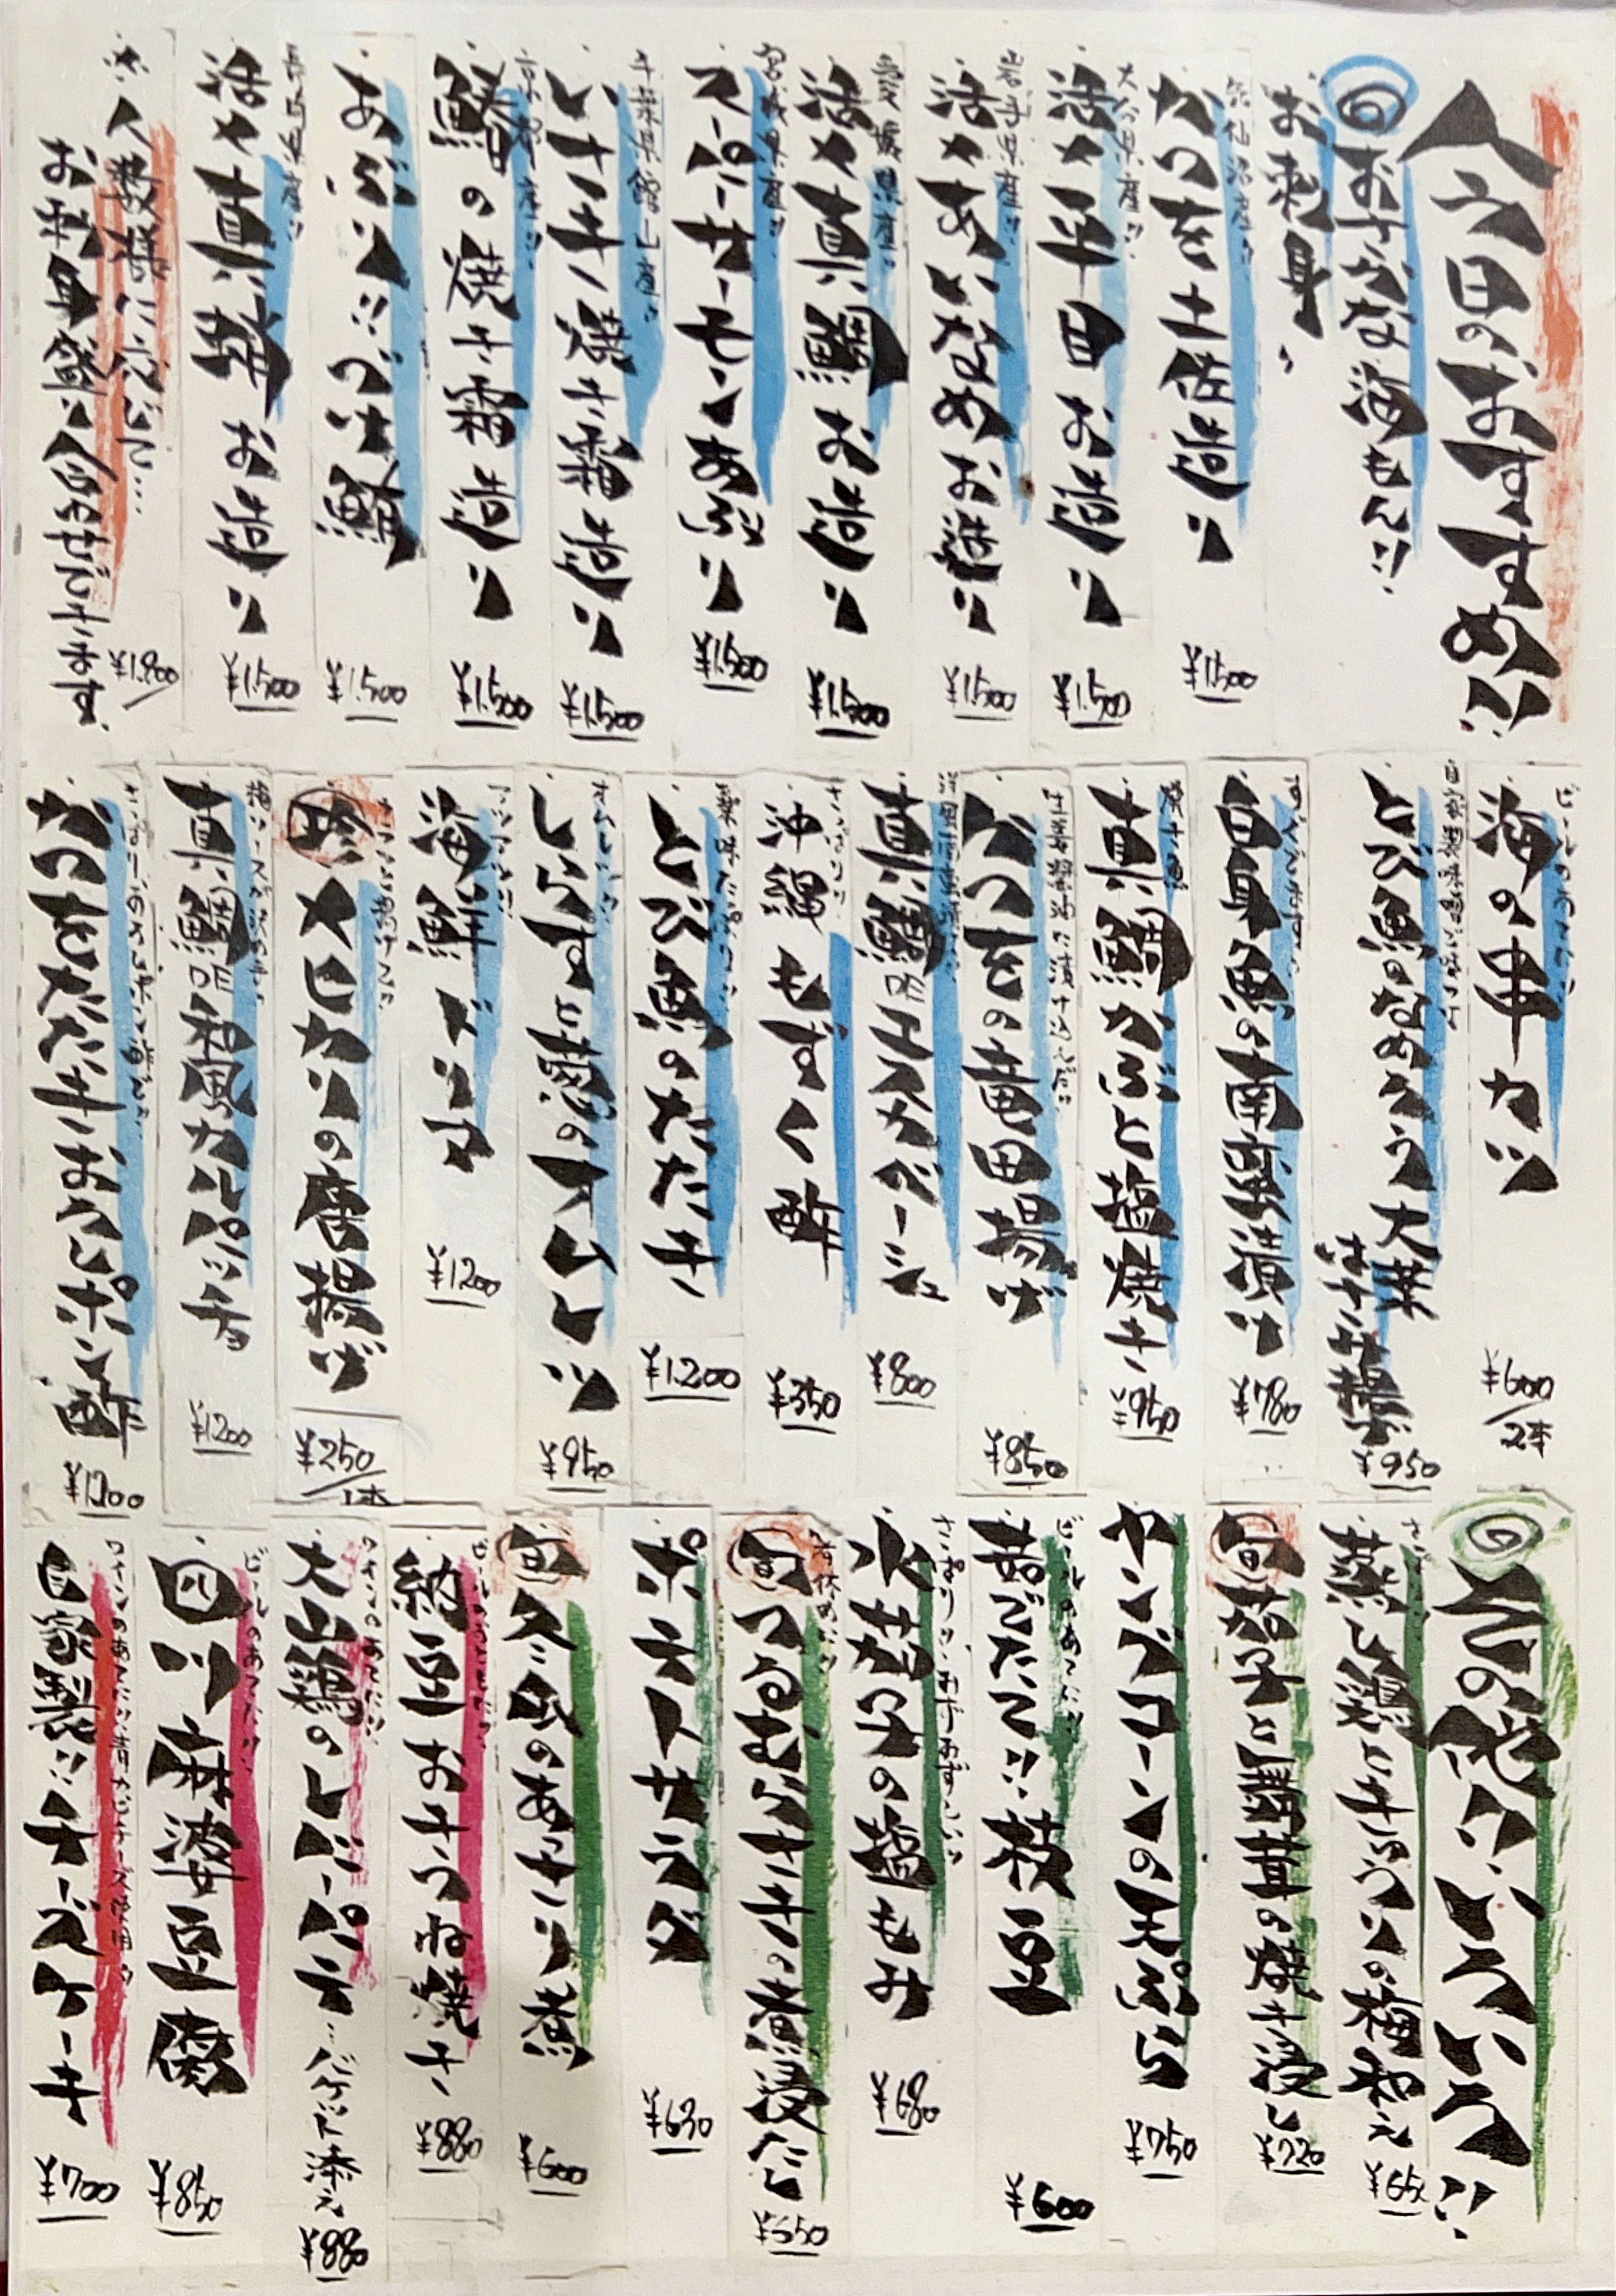 六日のおすすめ!!
おさかな海もん!!
お刺身
気仙沼産!!
かつを土佐造り
¥1,500
大分県産!!
活〆平目お造り
¥1,500
岩手県産!!
活〆あいなめお造り
¥1,500
愛媛県産!!
活〆真鯛お造り
¥1,500
宮城県産!!
スーパーサーモンあぶり
¥1,500
千葉県館山産!!
いサキ焼き霜造り
¥1,500
京都産!!
鰆の焼き霜造り
¥1,500
あぶり!!づけ鮪
¥1,500
活〆真鯵お造り
¥1,500
※人数様に応じて…
お刺身盛り合わせできます。
¥1,800/
ビールのあてに!!
海の串カツ
¥600/2本
自家製味噌
とび魚のなめろう大葉はさみ揚げ
¥950
白身魚の南蛮漬け
¥780
焼き魚
真鯛かぶと塩焼き
¥950
生姜醤油に漬け込んだ!!
かつをの竜田揚げ
¥850
真鯛DEエスカベーシュ
¥800
さっぱり!!
沖縄もずく酢
¥350
薬味たっぷり!!
とび魚のたたき
¥1,200
しらすと葱のオムレツ
¥950
海鮮ドリア
¥1200
珍メヒカリの唐揚げ
¥250/1本
真鯛DE和風カルパッチョ
¥1200
かつをたたきおろしポン酢
¥1200
その他いろいろ!!
蒸し鶏ときゅうりの梅和え
¥650
旬茄子と舞茸の焼き浸し
¥720
ヤングコーンの天ぷら
¥750
ビールのあてに!!
茹でたて!!枝豆
¥600
水茄子の塩もみ
¥680
旬つるむらさきの煮浸たし
¥550
ポテトサラダ
¥630
旬冬瓜のあっさり煮
¥600
納豆おきつね焼き
¥880
ワインのあてに!!
大山鶏のレバーパテ…バゲット添え
¥880
ビールのあてに!!
四川麻婆豆腐
¥850
ワインのあてに!!青カビチーズ使用
自家製!!チーズケーキ
¥700